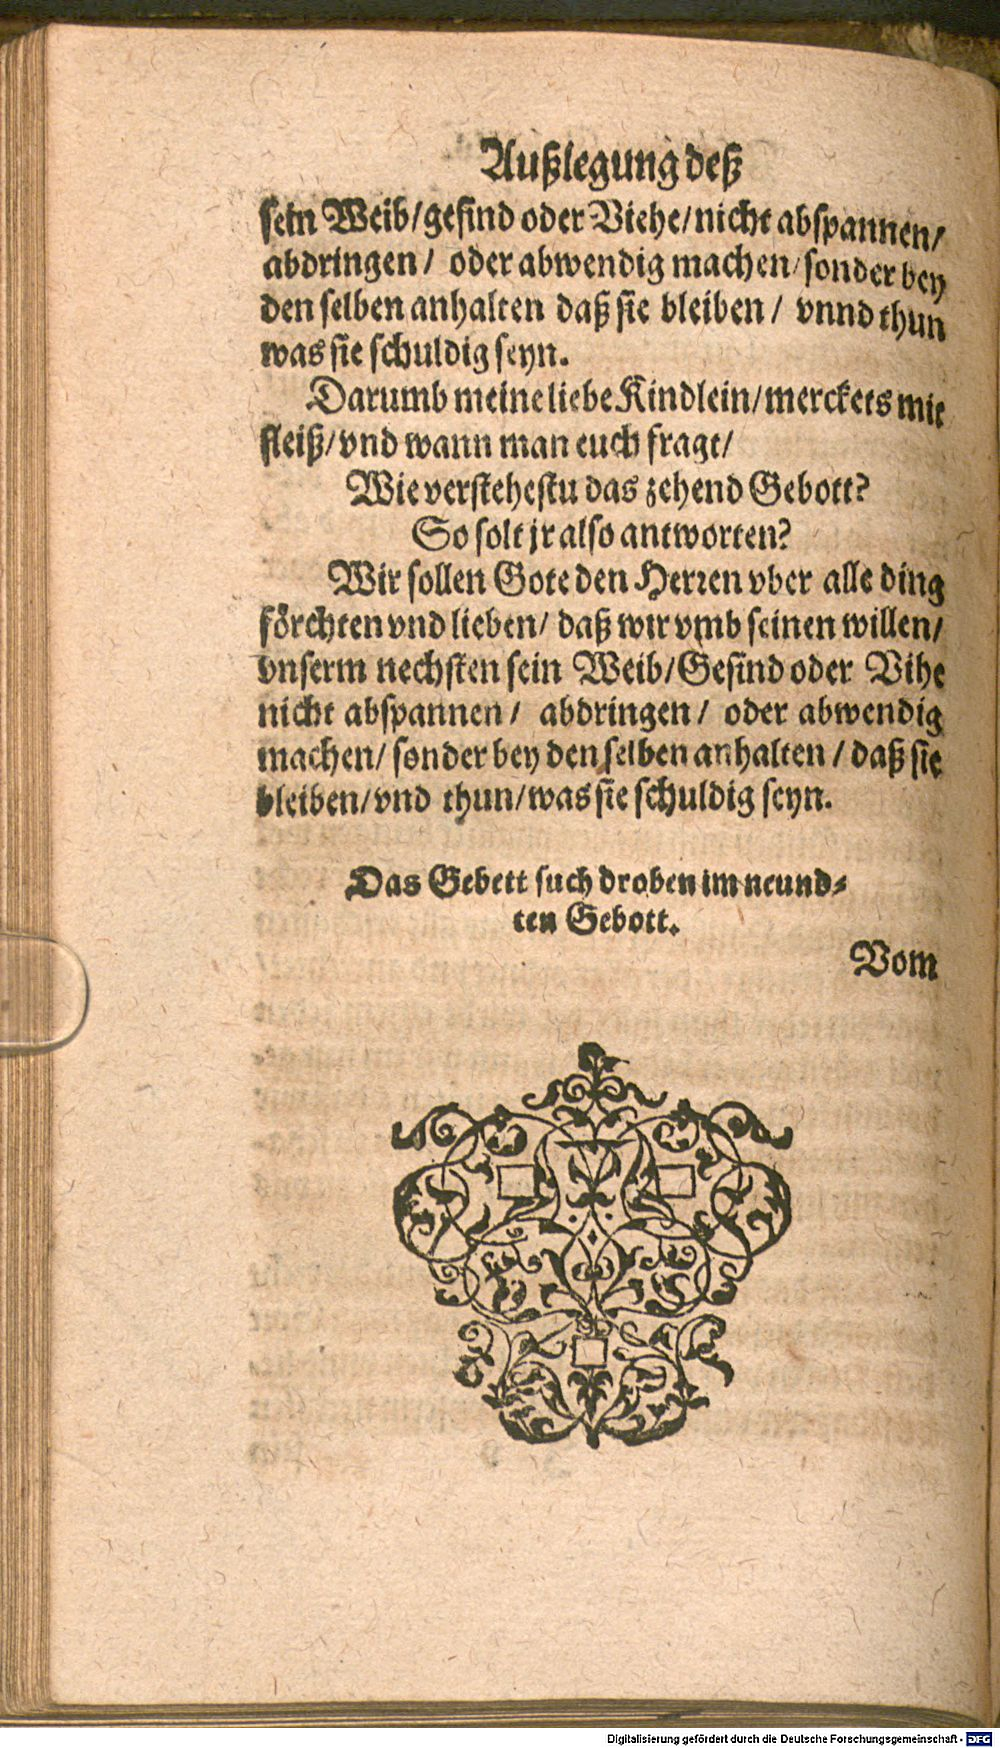 Außlegung deß
sein Weib/gesind oder Viehe/nicht abspannen/
abdringen/ oder abwendig machen/sonder bey
den selben anhalten daß sie bleiben/ vnnd thun
was sie schuldig seyn.
Darumb meine liebe Kindlein/merckets mit
fleiß/vnd wann man euch fragt/
Wie verstehestu das zehend Gebott?
So solt jr also antworten?
Wir sollen Gott den Herren vber alle ding
förchten vnd lieben/ daß wir vmb seinen willen/
vnserm nechsten sein Weib/Gesind oder Vihe
nicht abspannen/ abdringen/ oder abwendig
machen/ sonder bey den selben anhalten/ daß sie
bleiben/vnd thun/was sie schuldig seyn.
Das Gebett such droben im neund-
ten Gebott.
Vom
Digitalisierung gefördert durch die Deutsche Forschungsgemeinschaft - DFG